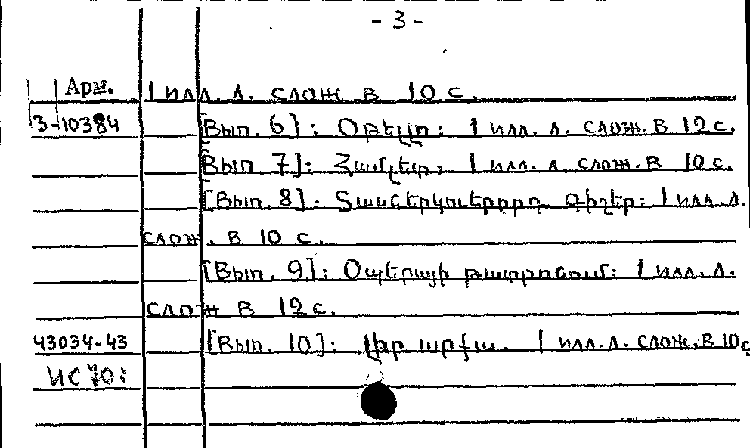 - 3 -
Арм. 1 илл. л. слож в 10 с.
3-10384 [Вып. 6]: Օթելլո: 1 илл. л. слож. в 12 с.
[Вып 7]: Համլետ: 1 илл. л слож. в 10 с.
[Вып. 8]: Տասներկուերորդ գիշեր: 1 илл. л.
слож. в 10 с.
[Вып. 9]: Օպերայի թատրոնում: 1 илл. л.
слож в 12 с.
43034-43 [Вып. 10]: Լիր արքա. 1 илл. л. слож. в 10 с
ИС 70: